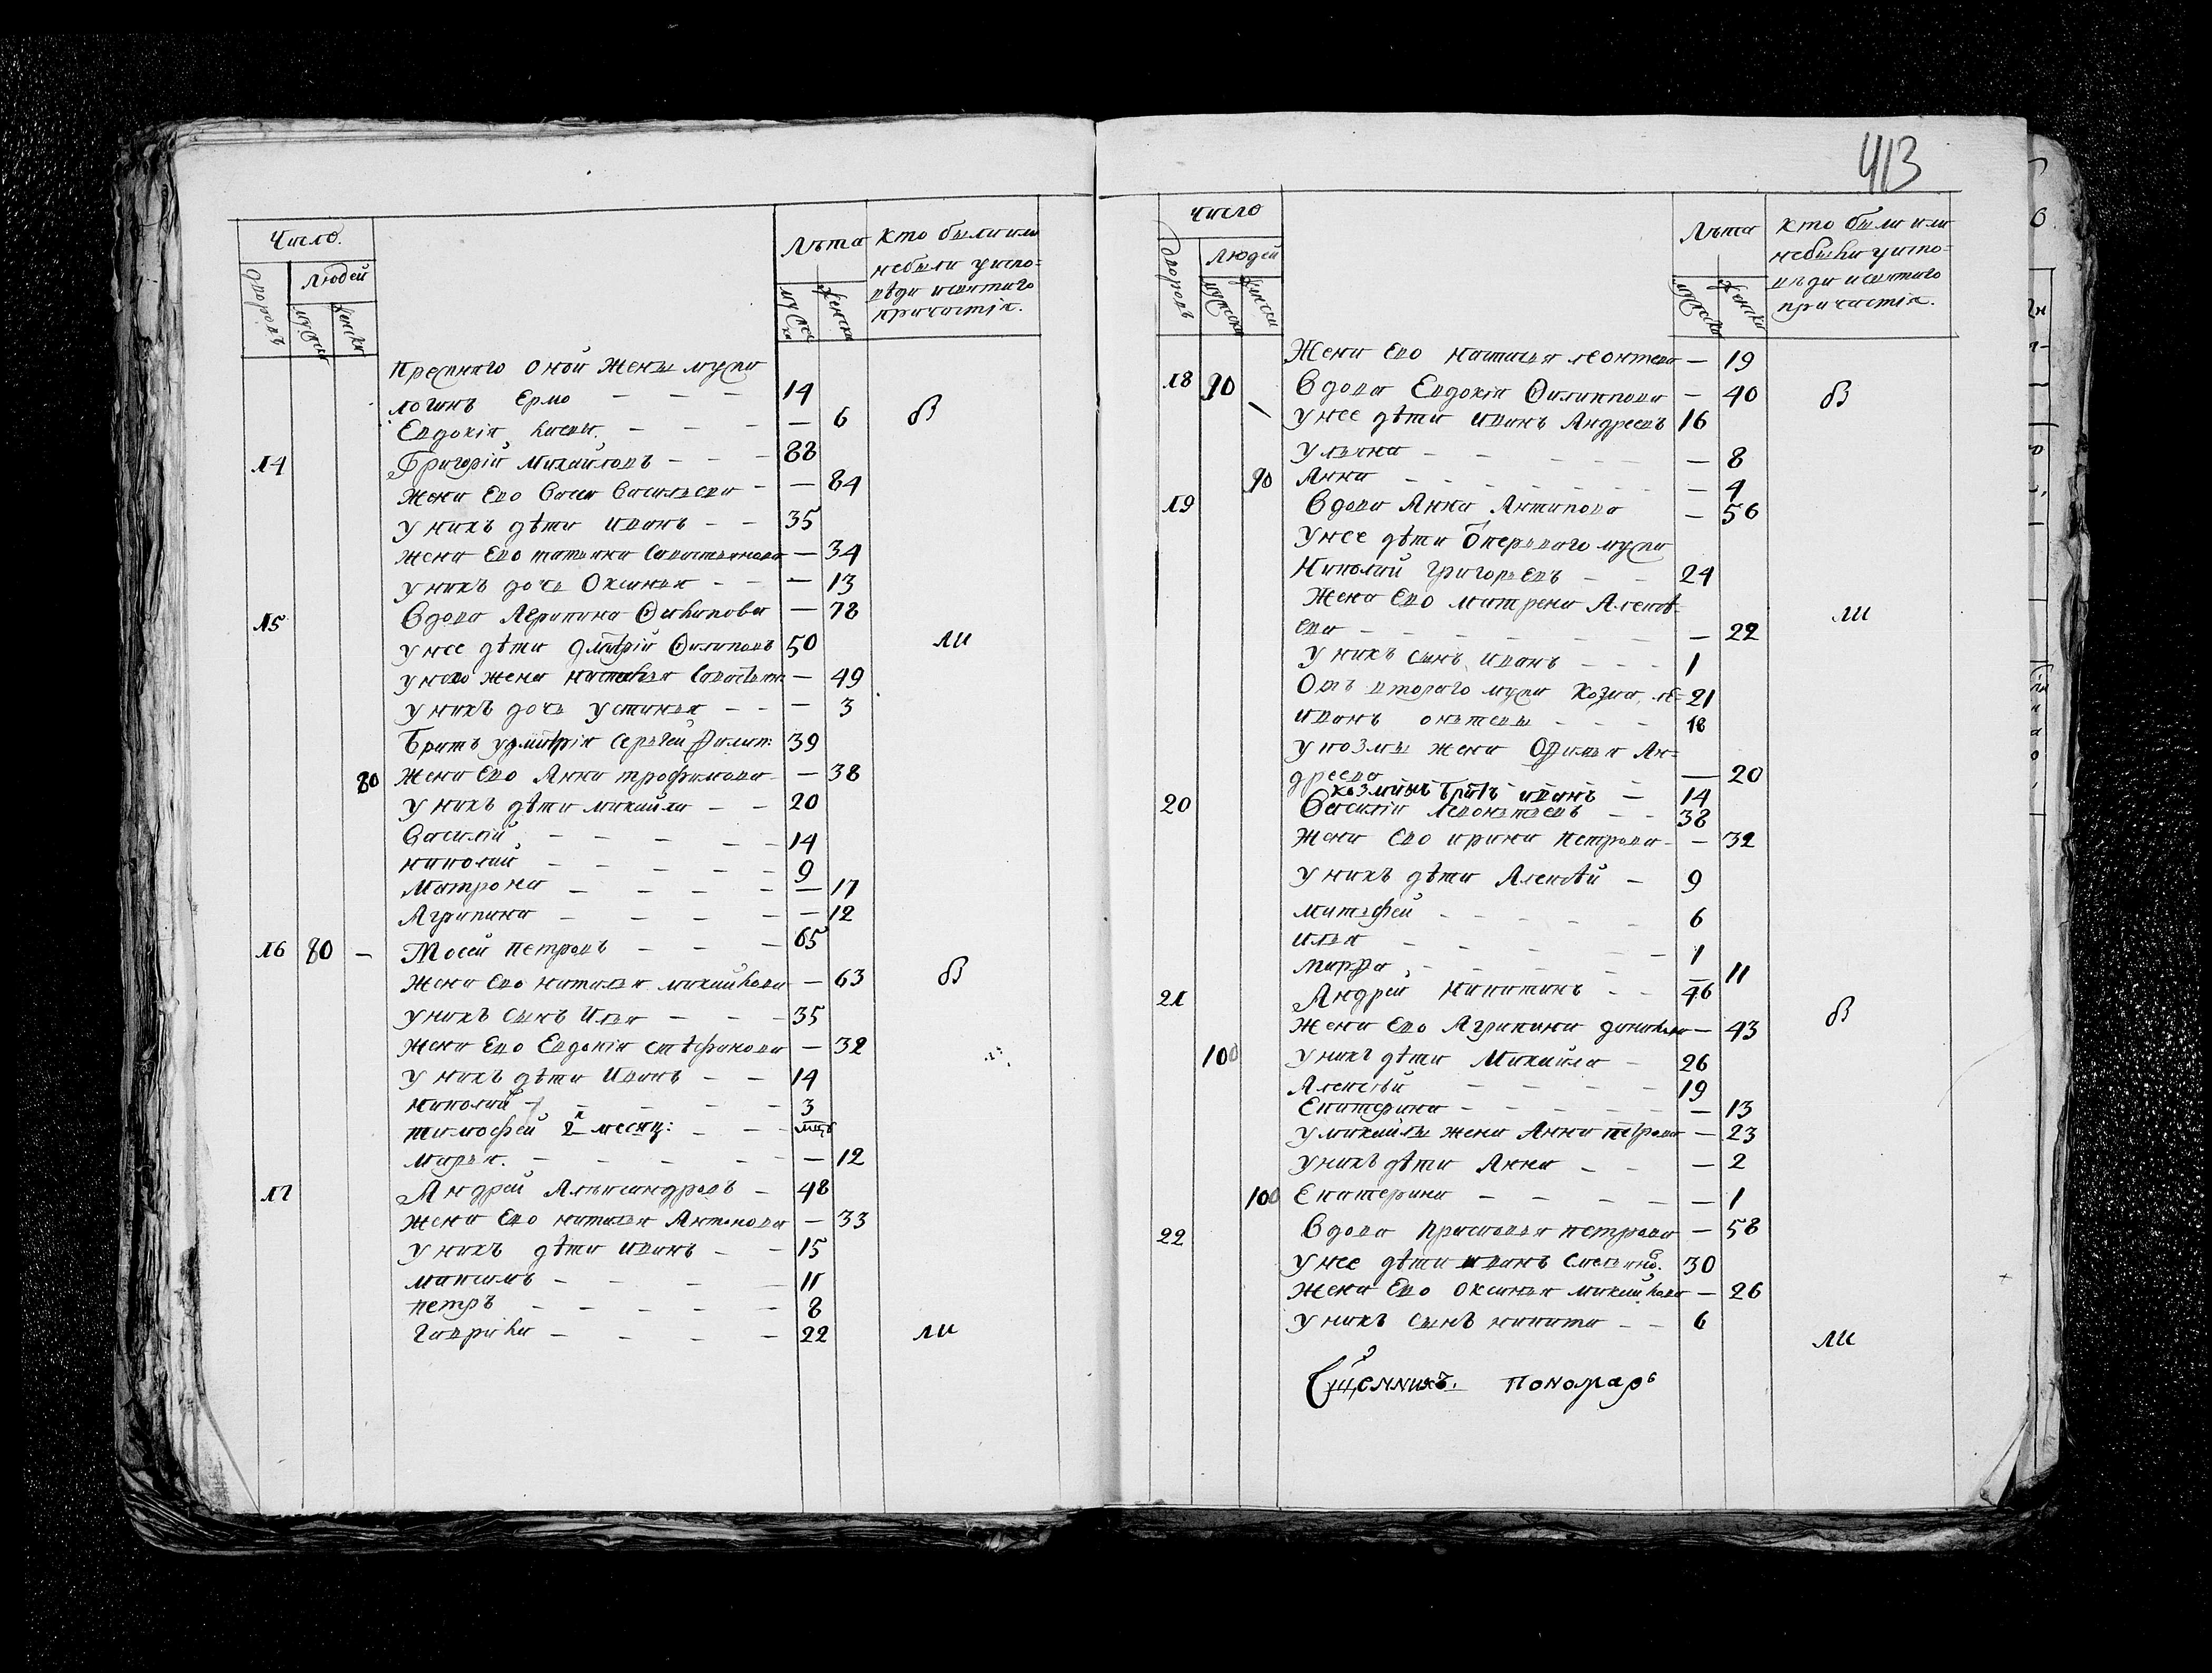 Число.
дворовъ
людей
мужеска
женска
Лѣта
мужеска
женска
Кто были или
небыли уиспо-
вѣди исвятаго
причастія.
Прежняго оной жены мужа
логинъ Ермо — — — 14
Евдокія — — — — 6
В
14 Григорій михайловъ — — — 88
Жена Ево Васа Васильева — — 84
у нихъ дѣти иванъ — — 35
жена Ево татьяна Савостьянова — 34
у нихъ дочь Оксинья — — — 13
15 Вдова Агрипина Филипова — 78
у нее дѣти дмитрій Филиповъ 50
ли
у него жена наталья Савостьян: — 49
у нихъ дочь устинья — — — 3
Братъ удмитрія Сергей Филип: 39
80 Жена Ево Анна трофимова — 38
у нихъ дѣти михайла — — 20
Василій — — — — — 14
николай — — — — — 9
Матрона — — — — — 17
Агрипина — — — — — 12
16 80 — Мосей петровъ — — — 65
Жена Ево наталья михайлова — 63
В
у нихъ сынъ Илья — — — 35
жена Ево Евдокія стѣфанова — 32
у нихъ дѣти Иванъ — — 14
николай — — — — — 3
тимофей 2х месяц: — — — мцъ
марья. — — — — — — 12
17 Андрей Александровъ — 48
жена Ево наталья Антонова — 33
у нихъ дѣти иванъ — — 15
максимъ — — — — 11
петръ — — — — — 8
Гаврила — — — — 22
ли
413
Число
дворовъ
людей
мужеска
женска
Лѣта
мужеска
женска
Кто были или
небыли уиспо-
вѣди исвятаго
причастія.
Жена Ево наталья леонтева — 19
18 90 Вдова Евдокія Филиппова — 40
В
у нее дѣти иванъ Андреевъ 16
Ульяна — — — — — 8
90 Анна — — — — — — 4
19 Вдова Анна Антипова — 56
у нее дѣти ѿ перваго мужа
Николай григорьевъ — — 24
Жена Ево матрена Алексѣ-
ева — — — — — — 22
ли
у нихъ сынъ иванъ — — — 1
Отъ втораго мужа Козма, ле- 21
иванъ онтевы — — — 18
у козмы жена Офимья Ан-
дреева — 20
козминъ братъ иванъ — 14
20 Василій Левонтьевъ — — 38
жена Ево ирина петрова — — 32
у нихъ дѣти Алексѣй — 9
матвфей — — — — 6
илья — — — — — 1
марфа — — — — — 11
21 Андрей никитинъ — — 46
жена Ево Агрипина данилова — 43
В
100 у нихъ дѣти Михайла — 26
Алексѣй — — — — 19
Екатерина — — — — — 13
у михайлы жена Анна петрова — 23
у нихъ дѣти Анна — — — 2
100 Екатерина — — — — — 1
22 Вдова прасковья петрова — 58
у нее дѣти иванъ 30
жена Ево оксинья михайлова — 26
у нихъ сынъ никита — — 6
ли
Сщенникъ. пономарь